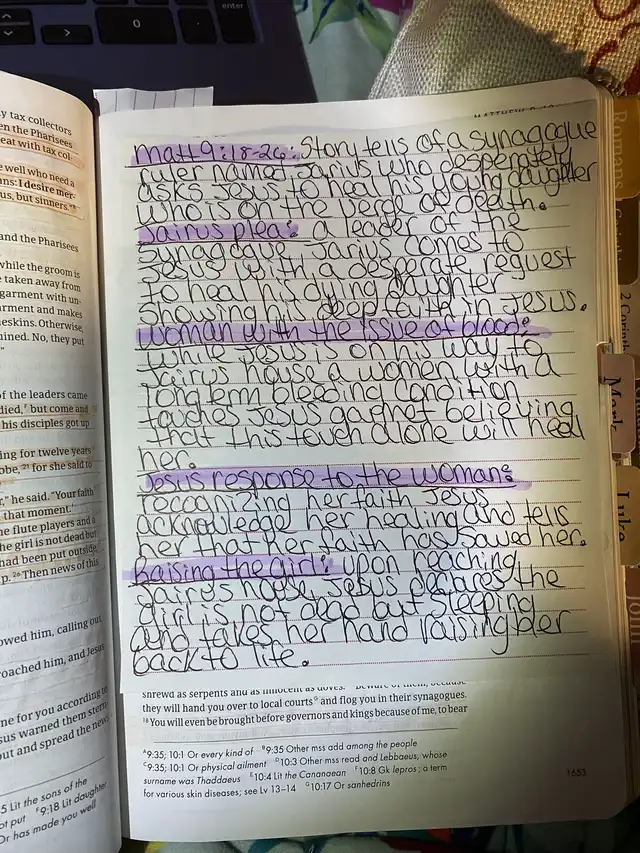 enter
y tax collectors
en the Pharisees
eat with tax col-
e well who need a
ns: I desire mer-
us, but sinners."
and the Pharisees
while the groom is
e taken away from
garment with un-
arment and makes
eskins. Otherwise,
ined. No, they put
of the leaders came
died, but come and
his disciples got up
ing for twelve years
obe, 21 for she said to
," he said. "Your faith
that moment.
he flute players and a
he girl is not dead but
had been put outside,
p. 26 Then news of this
owed him, calling out,
roached him, and Jesus
ne for you according to
sus warned them stern
out and spread the new
5 Lit the sons of the
ot put F9:18 Lit daughter
Or has made you well
matt 9:18-26: Story tells of a synagogue
ruler named Jarius who desperately
asks Jesus to heal his young daughter
who is on the verge of death.
Jairus plea: a leader of the
synagogue Jarius comes to
Jesus with a desperate request
to heal his dying daughter
showing his deep faith in Jesus.
Woman with the issue of blood:
while Jesus is on his way to
Jairus house a women with a
longterm bleeding condition
touches Jesus garmet believing
that this touch alone will heal
her.
Jesus response to the woman:
recognizing her faith Jesus
acknowledge her healing and tells
her that her faith has saved her.
Raising the girl: upon reaching
Jairus house, Jesus declares the
girl is not dead but sleeping
and takes her hand raising her
back to life.
shrewd as serpents and as innocent as doves. Beware of them, because
they will hand you over to local courts and flog you in their synagogues.
18 You will even be brought before governors and kings because of me, to bear
A9:35; 10:1 Or every kind of B9:35 Other mss add among the people
C9:35; 10:1 Or physical ailment D10:3 Other mss read and Lebbaeus, whose
surname was Thaddaeus E10:4 Lit the Cananaean F10:8 Gk lepros; a term
for various skin diseases; see Lv 13–14 G10:17 Or sanhedrins
1653
Romans
2 Corinth
Mark
Luke
John